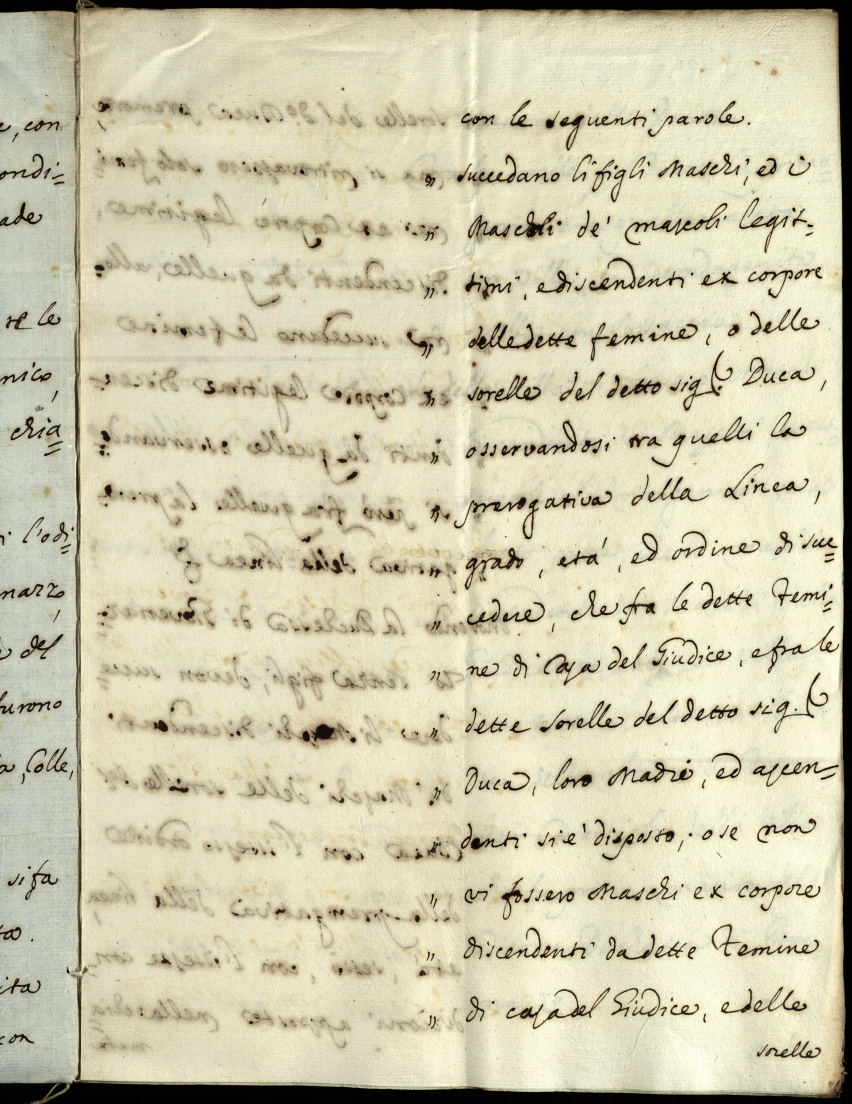 e, con
ondi=
ade
te le
nico,
chia=
i l'odi=
nazzo,
e del
furono
a, Colle,
si fa
ta.
ita
con
con le seguenti parole.
„ succedano li figli Maschi, ed i
„ Mascoli de' mascoli legit=
„ timi, e discendenti ex corpore
„ delle dette femine, o delle
„ sorelle del detto sig.r Duca,
„ osservandosi tra quelli la
„ prerogativa della Linea,
„ grado, età, ed ordine di suc=
„ cedere, che fra le dette Femi=
„ ne di Casa del Giudice, e fra le
„ dette sorelle del detto sig.r
„ Duca, loro Madri, ed ascen=
„ denti si è disposto; o se non
„ vi fossero Maschi ex corpore
„ discendenti da dette Femine
„ di casa del Giudice, e delle
sorelle